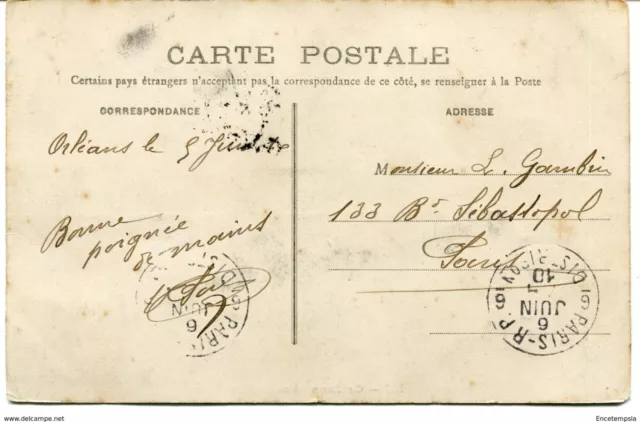 CARTE POSTALE
Certains pays étrangers n'acceptent pas la correspondance de ce côté, se renseigner à la Poste
CORRESPONDANCE
ADRESSE
Orléans le 5 Juin
Bonne
poignée
de mains
Monsieur L. Gambin
133 Bd. Sébastopol
Paris
6
JUIN
10
PARIS-R.P.
6
JUIN
PARIS
delcampe.net
Encetempsla